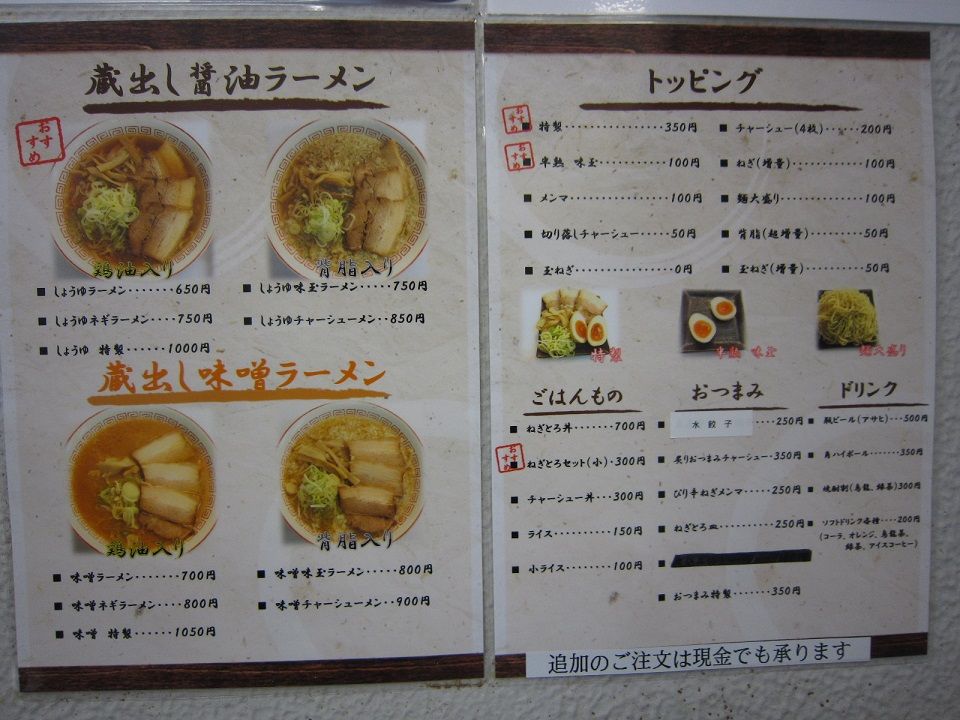 蔵出し醤油ラーメン
おすすめ
鶏油入り
背脂入り
■ しょうゆラーメン・・・・・・・650円
■ しょうゆ味玉ラーメン・・・・・750円
■ しょうゆネギラーメン・・・・750円
■ しょうゆチャーシューメン・・850円
■ しょうゆ 特製・・・・・・1000円
蔵出し味噌ラーメン
鶏油入り
背脂入り
■ 味噌ラーメン・・・・・・・700円
■ 味噌味玉ラーメン・・・・・800円
■ 味噌ネギラーメン・・・・800円
■ 味噌チャーシューメン・・900円
■ 味噌 特製・・・・・・1050円
トッピング
おすすめ
■ 特製・・・・・・・・・・・・350円
おすすめ
■ 半熟 味玉・・・・・・・・・・・100円
■ メンマ・・・・・・・・・・・・・100円
■ 切り落しチャーシュー・・・・・50円
■ 玉ねぎ・・・・・・・・・・・・・0円
■ チャーシュー(4枚)・・・・・・200円
■ ねぎ(増量)・・・・・・・・・・100円
■ 麺大盛り・・・・・・・・・・・100円
■ 背脂(超増量)・・・・・・・50円
■ 玉ねぎ(増量)・・・・・・・50円
特製
半熟 味玉
麺大盛り
ごはんもの
■ ねぎとろ丼・・・・・・・700円
おすすめ
■ ねぎとろセット(小)・300円
■ チャーシュー丼・・・300円
■ ライス・・・・・・・・・150円
■ 小ライス・・・・・・・・100円
おつまみ
■ 水餃子・・・・250円
■ 炙りおつまみチャーシュー・350円
■ ぴり辛ねぎメンマ・・・・・・250円
■ ねぎとろ皿・・・・・・・・・250円
■ おつまみ特製・・・・・・・350円
ドリンク
■ 瓶ビール(アサヒ)・・・500円
■ 角ハイボール・・・・・・・350円
■ 焼酎割(烏龍、緑茶)300円
■ ソフトドリンク各種・・・・200円
(コーラ、オレンジ、烏龍茶、
緑茶、アイスコーヒー)
追加のご注文は現金でも承ります